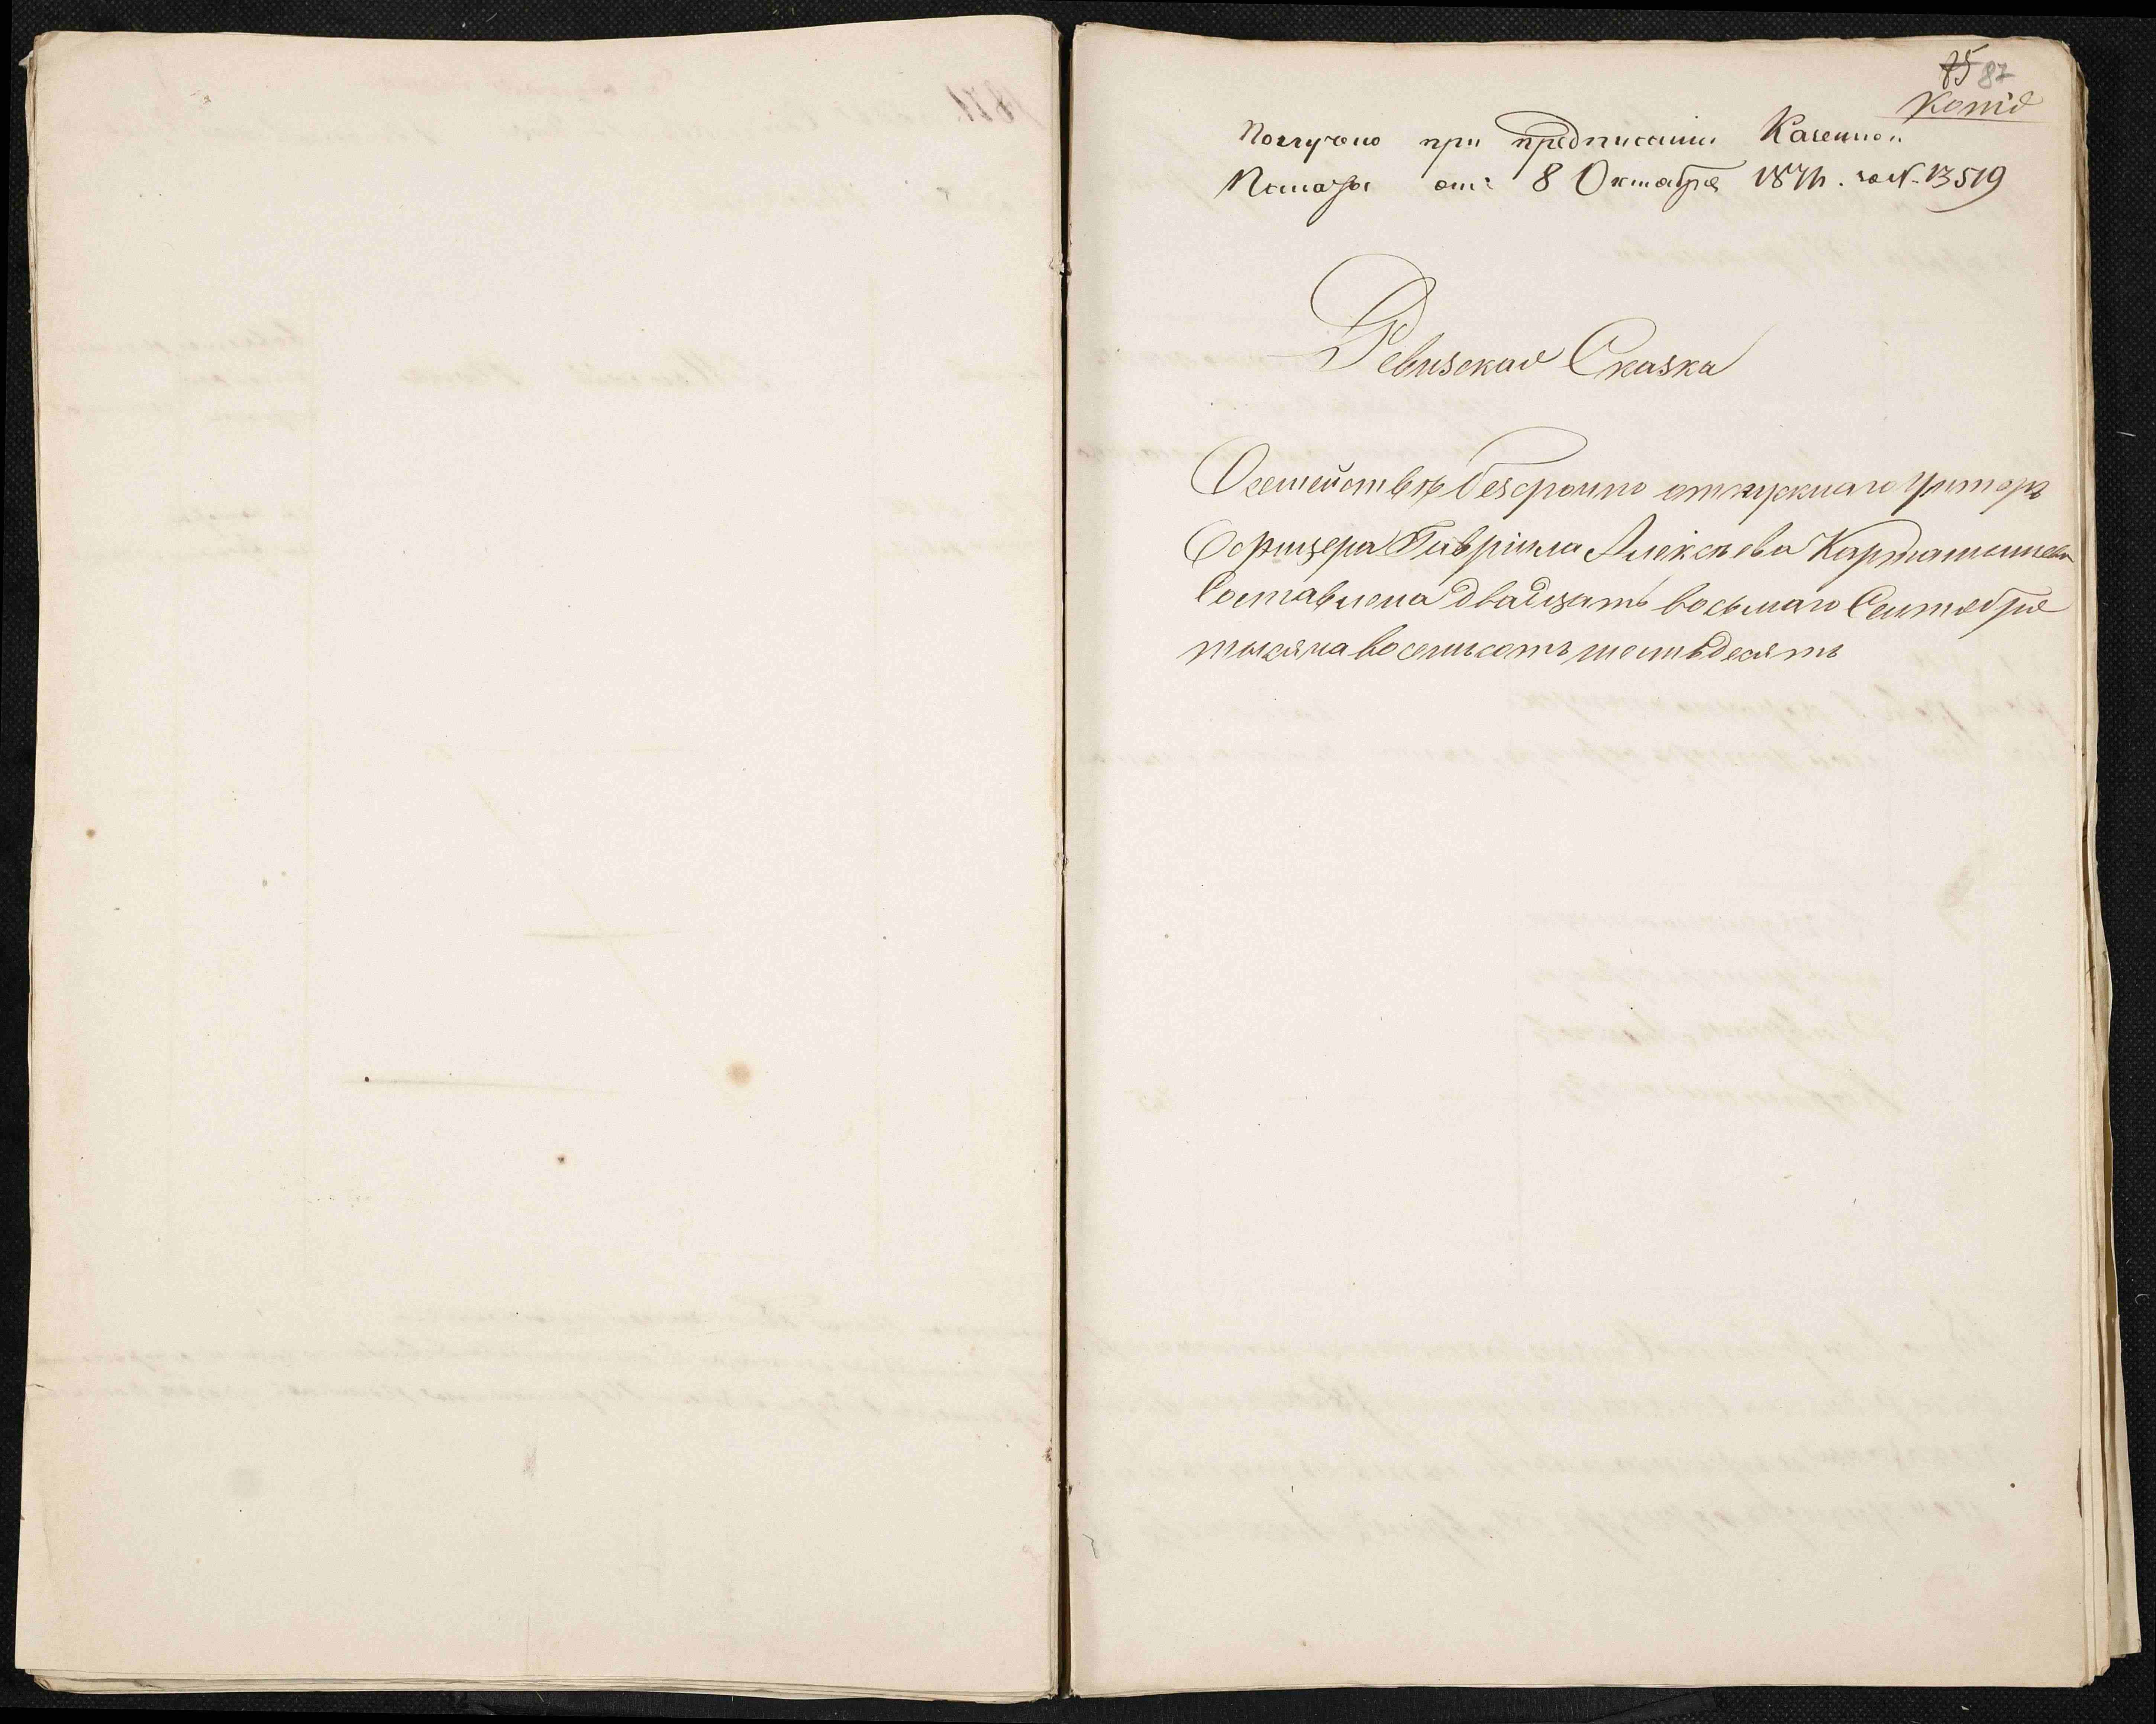 85 87
Копія
Получено при предписаніи Казенной
Палаты отъ 8 Октября 1871 г. за N. 13519
Ревизская Сказка
О семействѣ безсрочно отпускнаго унтеръ
Офицера Гавріила Алексѣева Карташнева
Составлена двадцать восьмаго Сентября
тысяча восемьсотъ шестьдесятъ